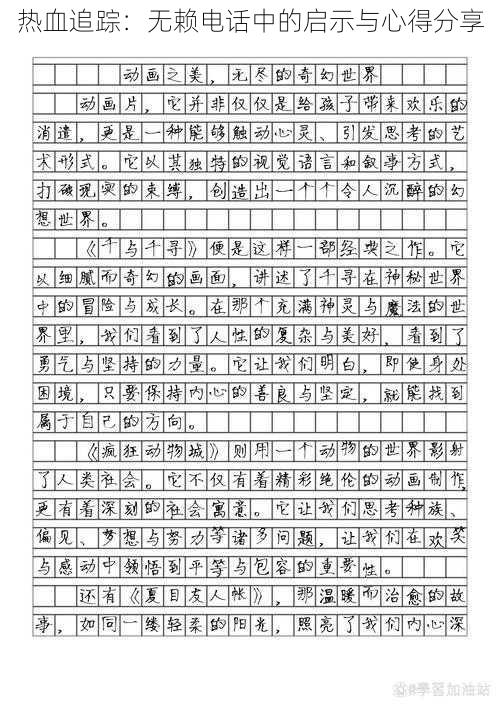 热血追踪：无赖电话中的启示与心得分享
动画之美，无尽的奇幻世界
动画片，它并非仅仅是给孩子带来欢乐的
消遣，更是一种能够触动心灵、引发思考的艺
术形式。它以其独特的视觉语言和叙事方式，
打破现实的束缚，创造出一个个令人沉醉的幻
想世界。
《千与千寻》便是这样一部经典之作。它
以细腻而奇幻的画面，讲述了千寻在神秘世界
中的冒险与成长。在那个充满神灵与魔法的世
界里，我们看到了人性的复杂与美好，看到了
勇气与坚持的力量。它让我们明白，即使身处
困境，只要保持内心的善良与坚定，就能找到
属于自己的方向。
《疯狂动物城》则用一个动物的世界影射
了人类社会。它不仅有着精彩绝伦的动画制作，
更有着深刻的社会寓意。它让我们思考种族、
偏见、梦想与努力等诸多问题，让我们在欢笑
与感动中领悟到平等与包容的重要性。
还有《夏目友人帐》，那温暖而治愈的故
事，如同一缕轻柔的阳光，照亮了我们内心深
學習加油站